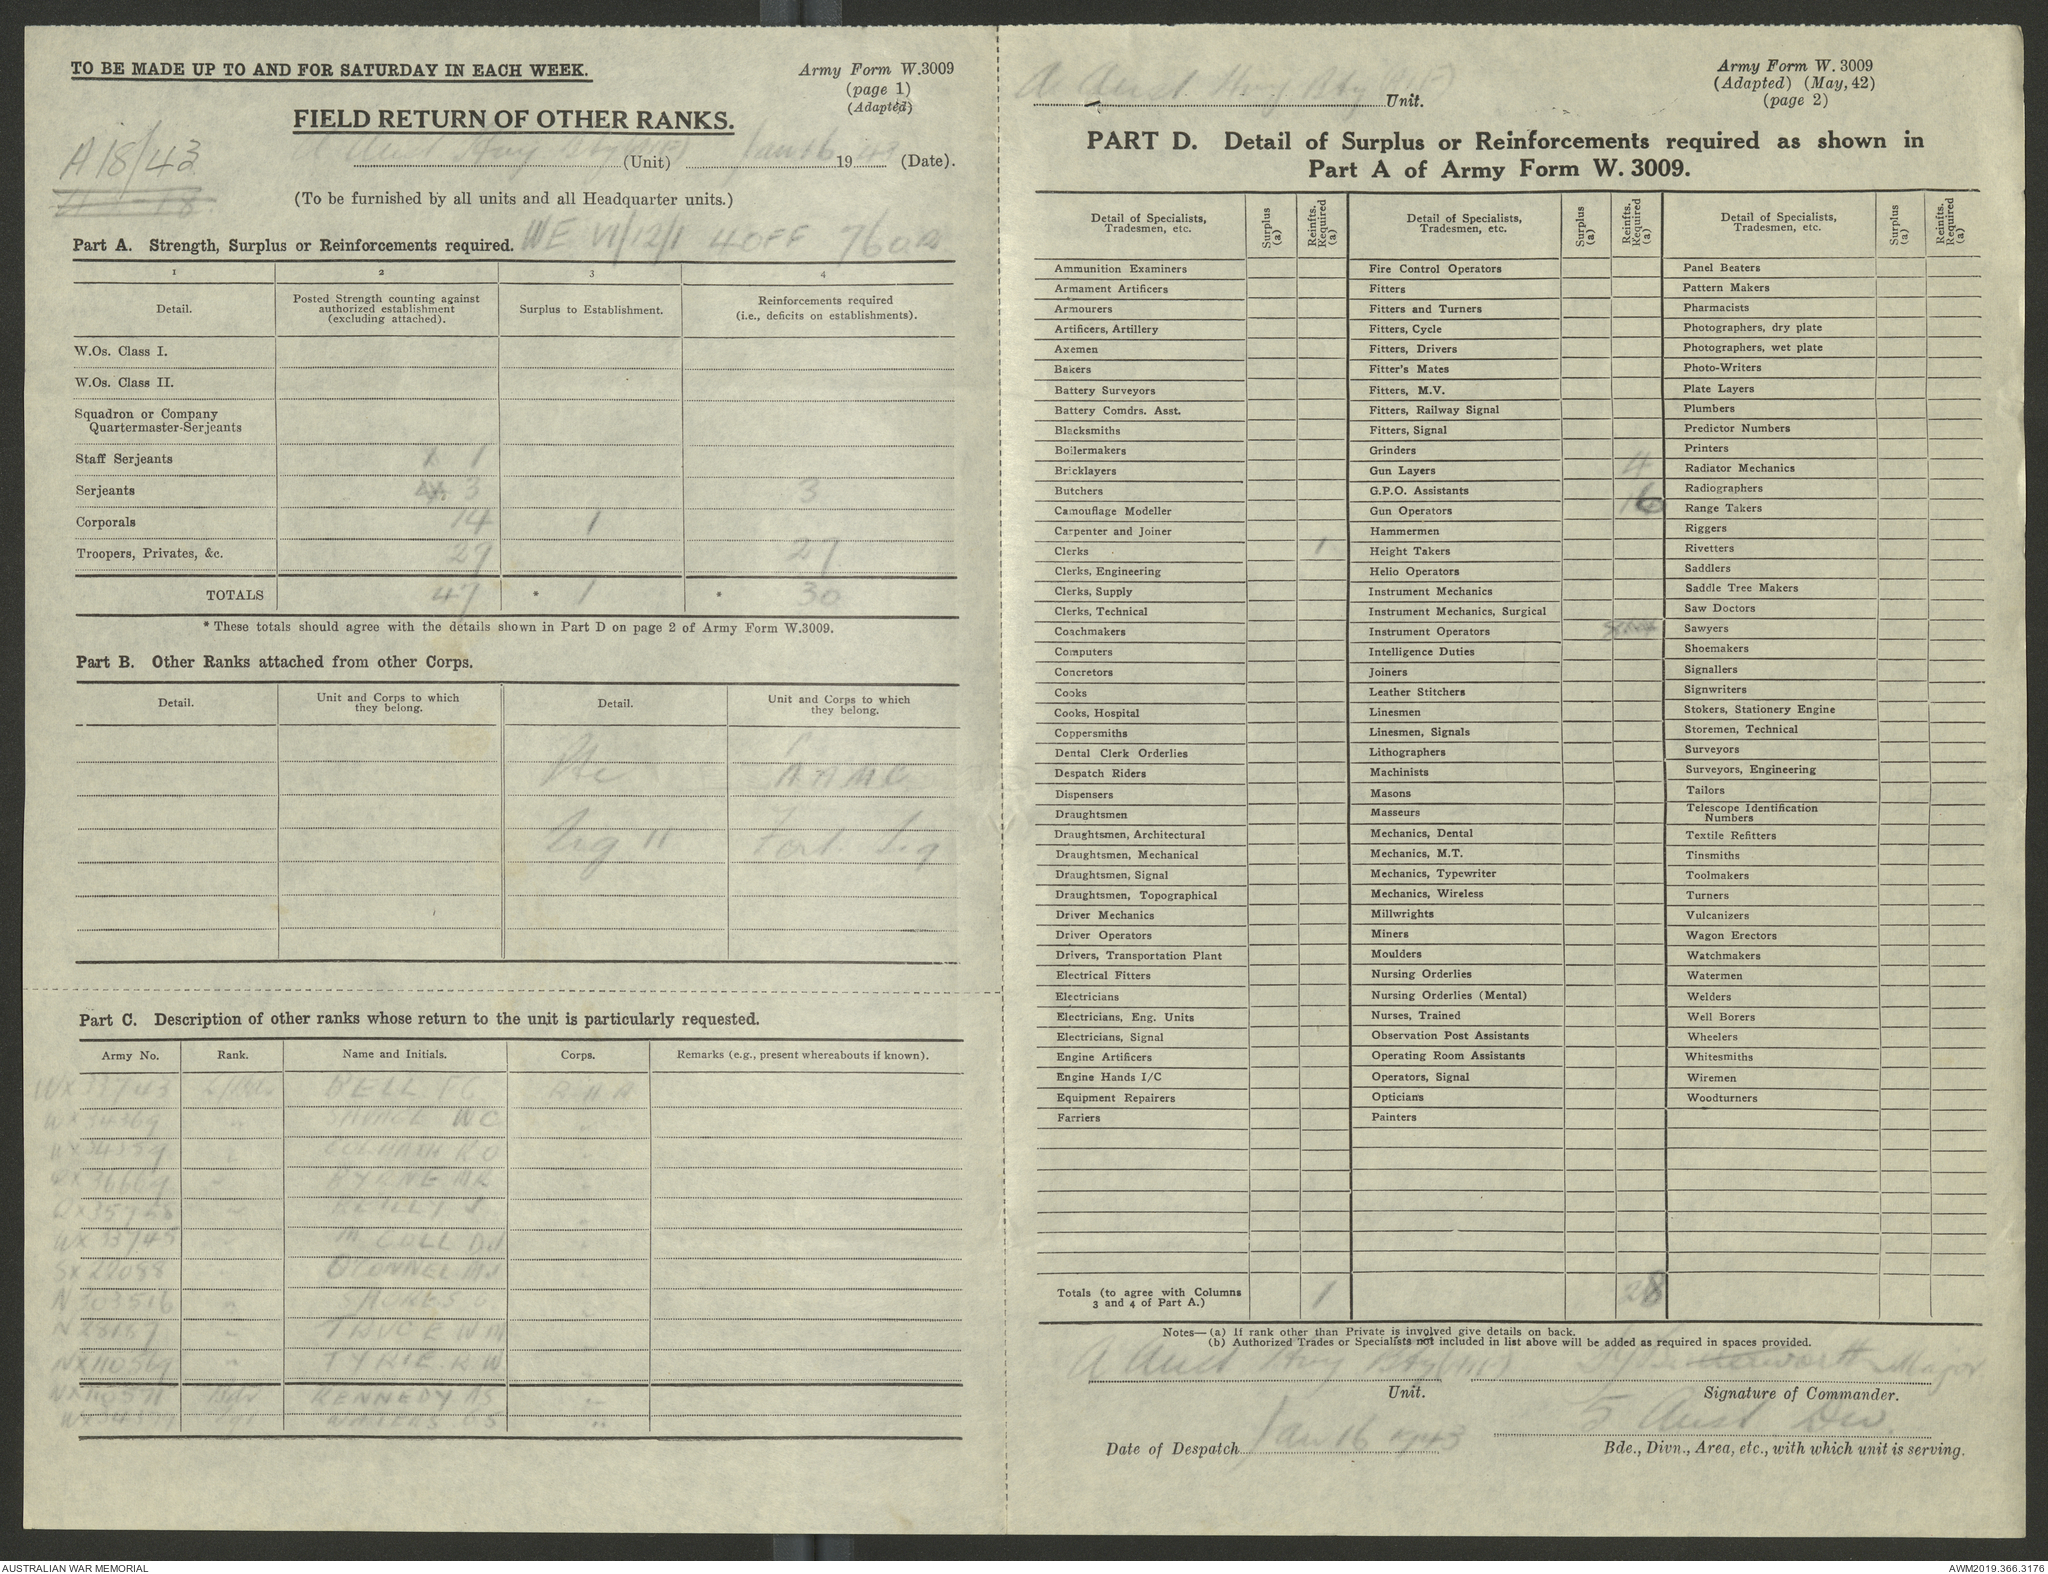 TO BE MADE UP TO AND FOR SATURDAY IN EACH WEEK.
Army Form W.3009
(page 1)
(Adapted)
FIELD RETURN OF OTHER RANKS.
A18/43
A Aust Hvy Bty (Unit) Jan 16 1943 (Date).
(To be furnished by all units and all Headquarter units.)
Part A. Strength, Surplus or Reinforcements required. WE VI/12/1 4 OFF 76 OR
1 2 3 4
Detail. Posted Strength counting against authorized establishment (excluding attached). Surplus to Establishment. Reinforcements required (i.e., deficits on establishments).
W.Os. Class I.
W.Os. Class II.
Squadron or Company
Quartermaster-Serjeants
Staff Serjeants 1
Serjeants 3 3
Corporals 14 1
Troopers, Privates, &c. 29 27
TOTALS 47 * 1 * 30
* These totals should agree with the details shown in Part D on page 2 of Army Form W.3009.
Part B. Other Ranks attached from other Corps.
Detail. Unit and Corps to which they belong. Detail. Unit and Corps to which they belong.
Pte AAMC
Sig 11 Fort. Sig
Part C. Description of other ranks whose return to the unit is particularly requested.
Army No. Rank. Name and Initials. Corps. Remarks (e.g., present whereabouts if known).
WX33743 L/Bdr BELL RAA
WX34369 " SAVAGE WC "
" "
BYRNE MR "
REILLY J "
WX33745 " McCOLL "
SX22088
N303516 "
N28187 "
NX110569 " TYRIE R W
KENNEDY AS
A Aust Hvy Bty Unit.
Army Form W. 3009
(Adapted) (May, 42)
(page 2)
PART D. Detail of Surplus or Reinforcements required as shown in
Part A of Army Form W. 3009.
Detail of Specialists, Tradesmen, etc. Surplus (a) Reinfts. Required (a) Detail of Specialists, Tradesmen, etc. Surplus (a) Reinfts. Required (a) Detail of Specialists, Tradesmen, etc. Surplus (a) Reinfts. Required (a)
Ammunition Examiners Fire Control Operators Panel Beaters
Armament Artificers Fitters Pattern Makers
Armourers Fitters and Turners Pharmacists
Artificers, Artillery Fitters, Cycle Photographers, dry plate
Axemen Fitters, Drivers Photographers, wet plate
Bakers Fitter's Mates Photo-Writers
Battery Surveyors Fitters, M.V. Plate Layers
Battery Comdrs. Asst. Fitters, Railway Signal Plumbers
Blacksmiths Fitters, Signal Predictor Numbers
Boilermakers Grinders Printers
Bricklayers Gun Layers 4 Radiator Mechanics
Butchers G.P.O. Assistants Radiographers
Camouflage Modeller Gun Operators 16 Range Takers
Carpenter and Joiner Hammermen Riggers
Clerks 1 Height Takers Rivetters
Clerks, Engineering Helio Operators Saddlers
Clerks, Supply Instrument Mechanics Saddle Tree Makers
Clerks, Technical Instrument Mechanics, Surgical Saw Doctors
Coachmakers Instrument Operators Sawyers
Computers Intelligence Duties Shoemakers
Concretors Joiners Signallers
Cooks Leather Stitchers Signwriters
Cooks, Hospital Linesmen Stokers, Stationery Engine
Coppersmiths Linesmen, Signals Storemen, Technical
Dental Clerk Orderlies Lithographers Surveyors
Despatch Riders Machinists Surveyors, Engineering
Dispensers Masons Tailors
Draughtsmen Masseurs Telescope Identification Numbers
Draughtsmen, Architectural Mechanics, Dental Textile Refitters
Draughtsmen, Mechanical Mechanics, M.T. Tinsmiths
Draughtsmen, Signal Mechanics, Typewriter Toolmakers
Draughtsmen, Topographical Mechanics, Wireless Turners
Driver Mechanics Millwrights Vulcanizers
Driver Operators Miners Wagon Erectors
Drivers, Transportation Plant Moulders Watchmakers
Electrical Fitters Nursing Orderlies Watermen
Electricians Nursing Orderlies (Mental) Welders
Electricians, Eng. Units Nurses, Trained Well Borers
Electricians, Signal Observation Post Assistants Wheelers
Engine Artificers Operating Room Assistants Whitesmiths
Engine Hands I/C Operators, Signal Wiremen
Equipment Repairers Opticians Woodturners
Farriers Painters
Totals (to agree with Columns 3 and 4 of Part A.) 1 28
Notes—(a) If rank other than Private is involved give details on back.
(b) Authorized Trades or Specialists not included in list above will be added as required in spaces provided.
A Aust Hvy Bty Major
Unit. Signature of Commander.
Date of Despatch Jan 16 1943 5 Aust Div.
Bde., Divn., Area, etc., with which unit is serving.
AUSTRALIAN WAR MEMORIAL
AWM2019.366.3176